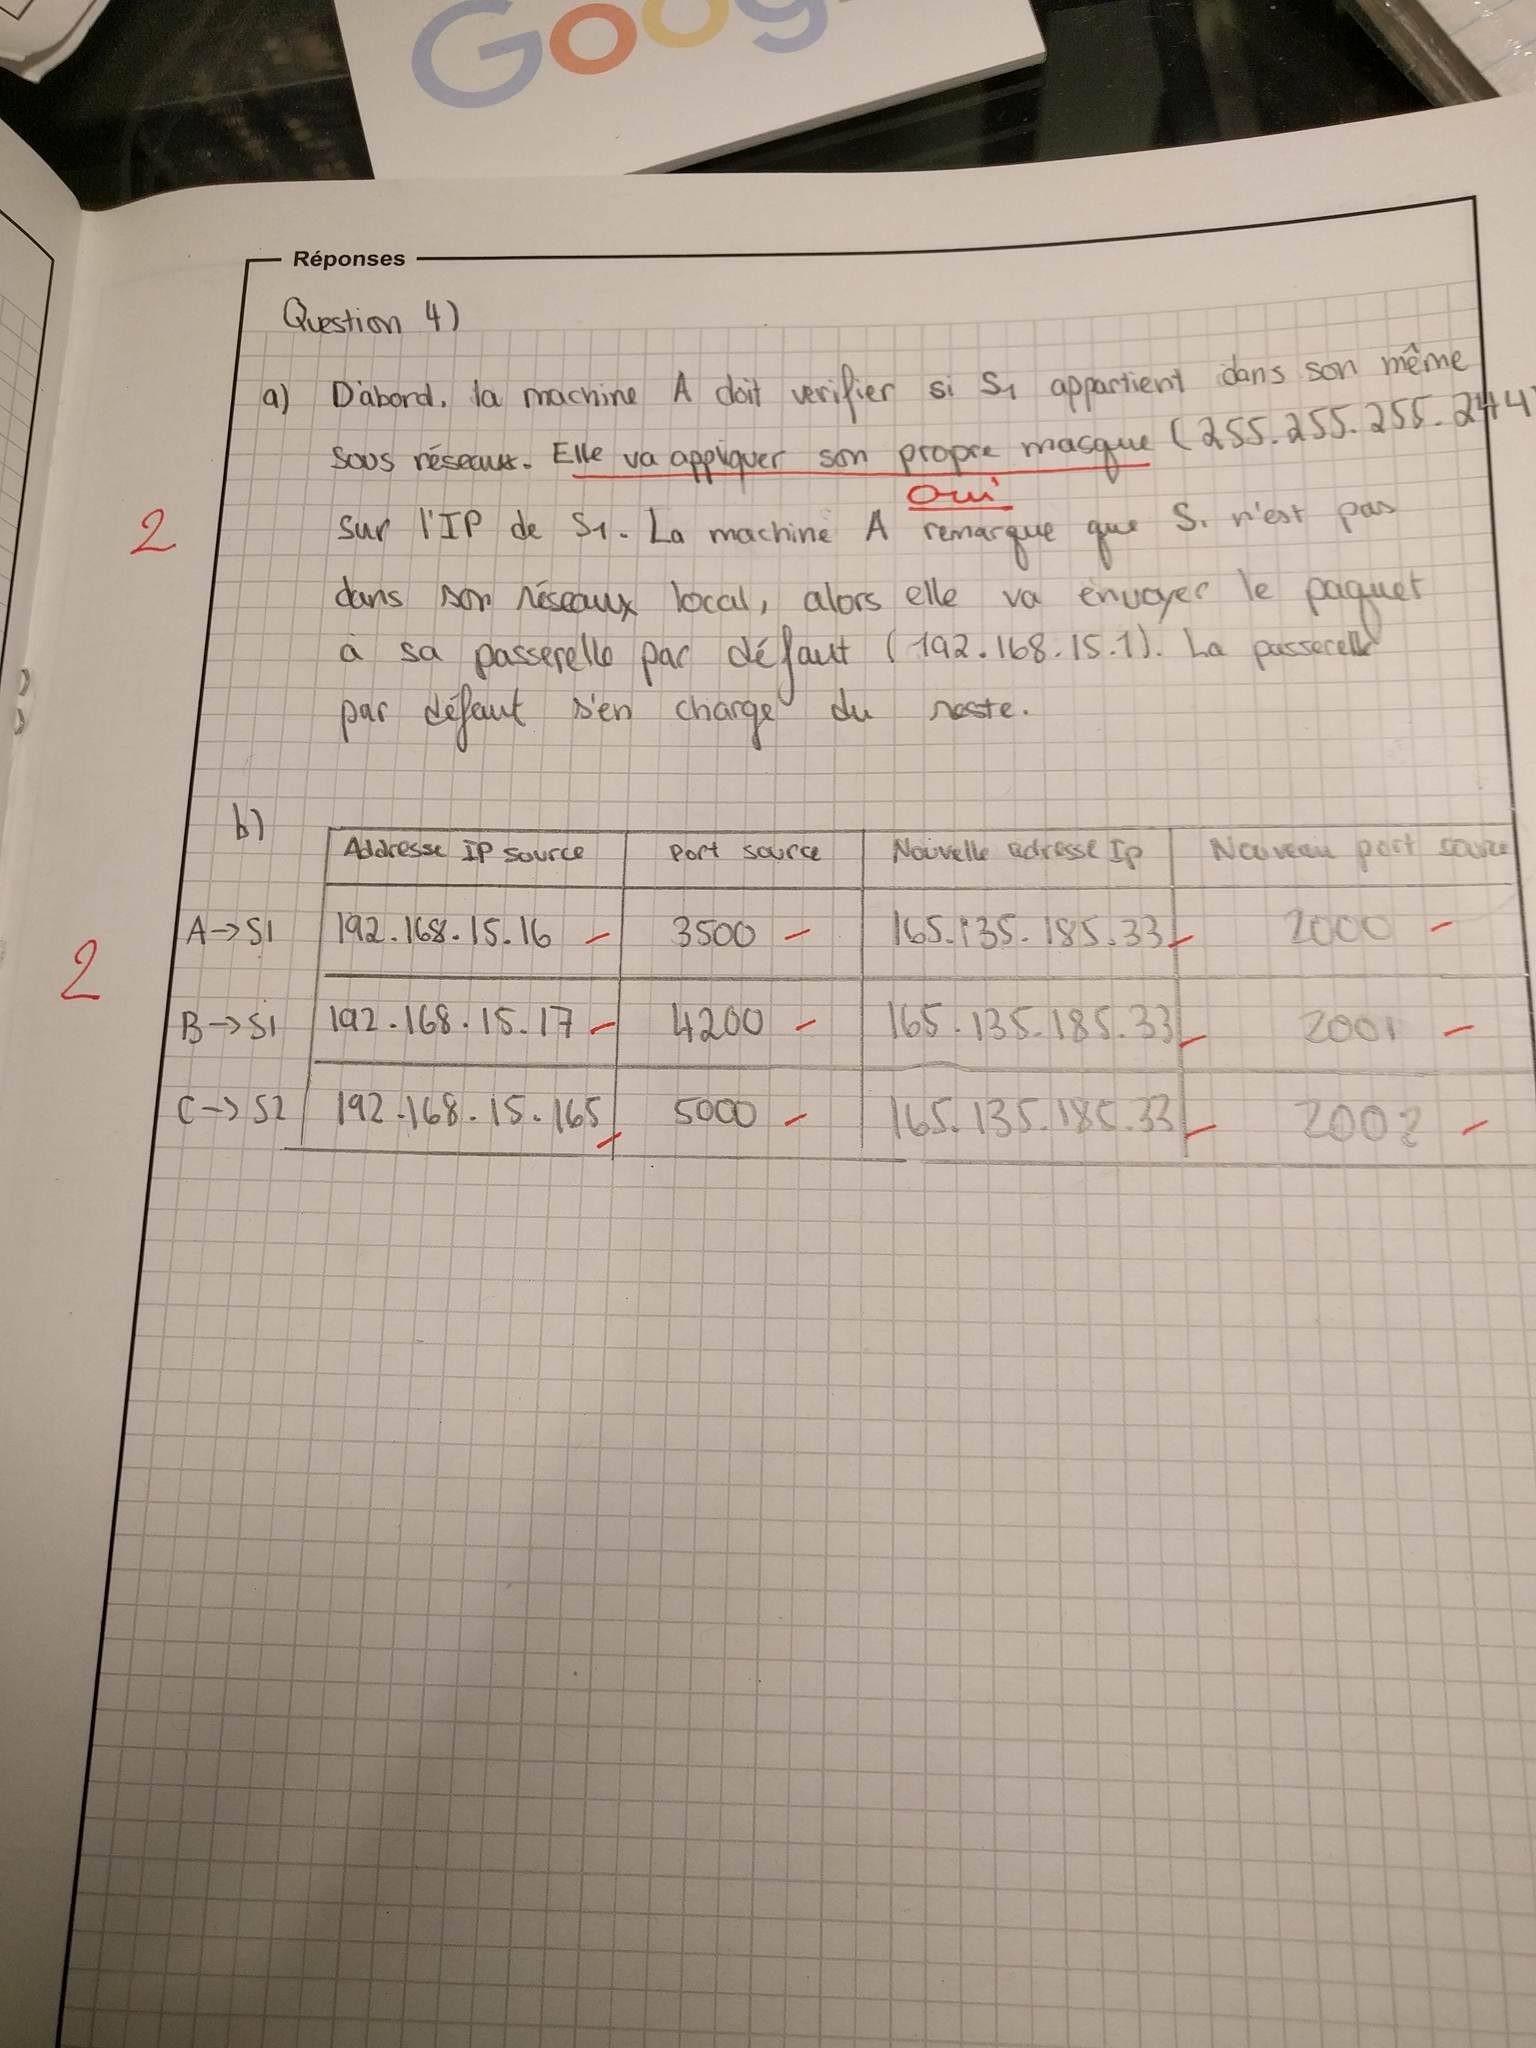 Goog
Réponses
Question 4)
a) D'abord, la machine A doit verifier si S1 appartient dans son même
sous réseaux. Elle va appliquer son propre masque (255.255.255.244)
Oui
2
sur l'IP de S1. La machine A remarque que S1 n'est pas
dans son réseaux local, alors elle va envoyer le paquet
à sa passerelle par défaut (192.168.15.1). La passerelle
par défaut s'en charge du reste.
b)
Addresse IP source Port source Nouvelle adresse Ip Nouveau port source
A→S1 192.168.15.16 3500 165.135.185.33 2000
2
B→S1 192.168.15.17 4200 165.135.185.33 2001
C→S2 192.168.15.165 5000 165.135.185.33 2002